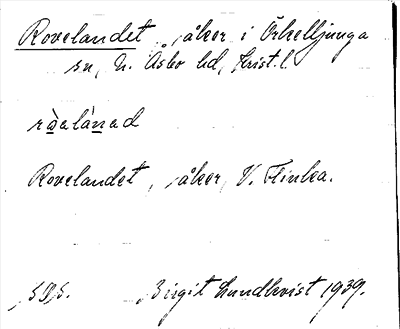 Rovelandet, åker i Örkelljunga
sn, N. Åsbo hd, Krist. l.
Rovelandet, åker, V. Flinka.
Birgit Lundkvist 1939.